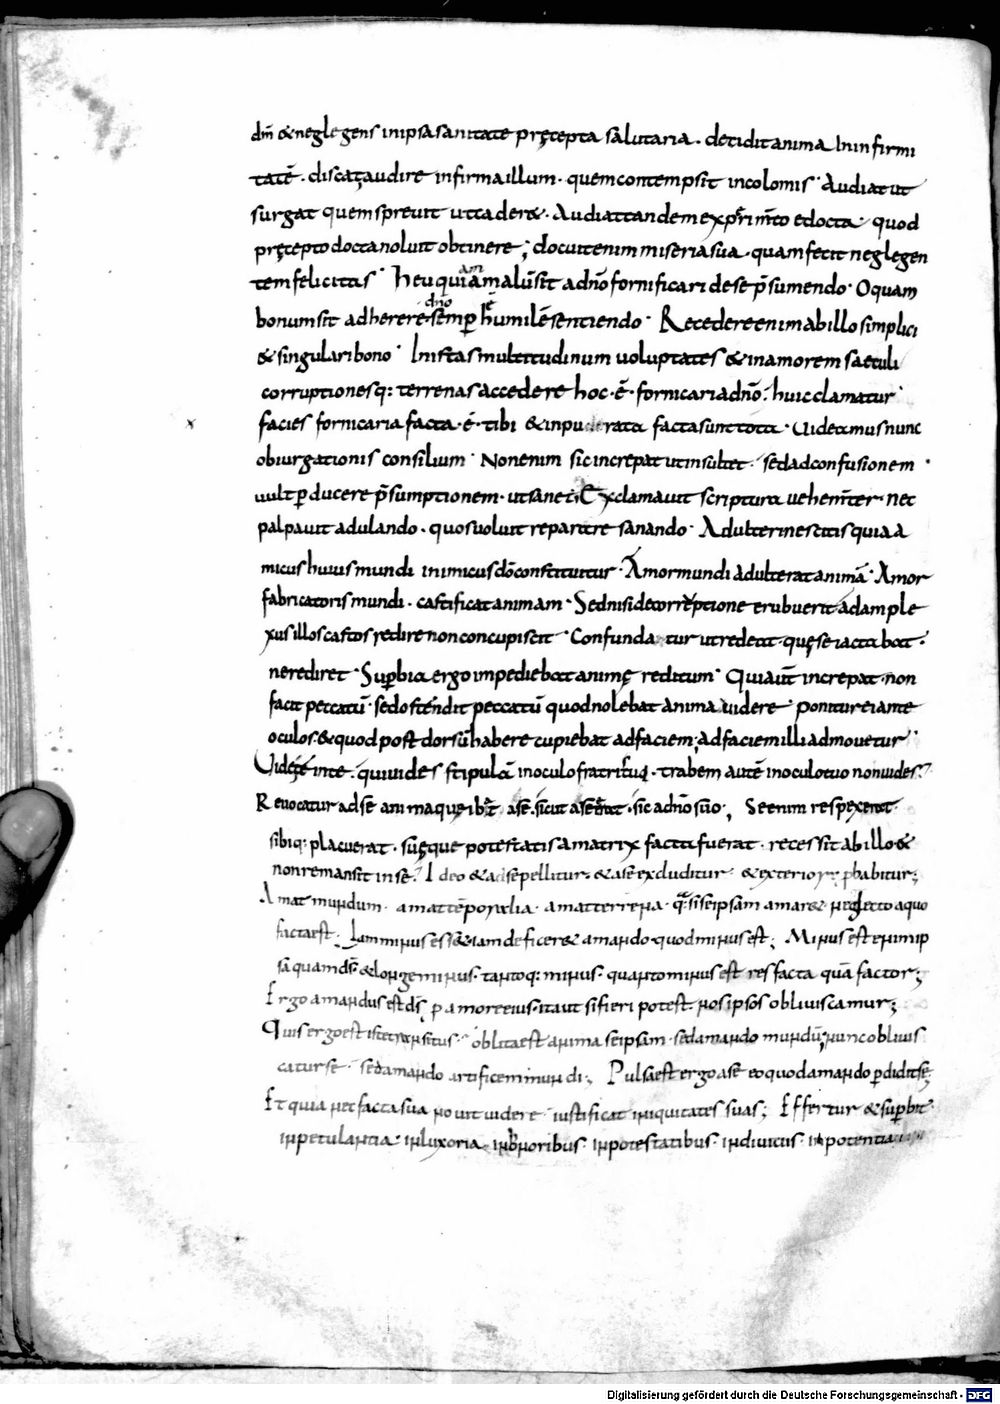 dm̄ & neglegens in ipsa sanitate pręcepta salutaria · decidit anima In infirmi
tatē · discat audire infirma illum · quem contempsit incolomis · Audiat ut
surgat quem sprevit ut caderet · Audiat tandem exp̄rim̄to edocta · quod
pręcepto docta noluit obtinere ; docuit enim miseria sua · quam fecit neglegen
tem felicitas · heu quiam malū sit a dn̄o fornificari de se p̄sumendo · O quam
bonum sit adherere dn̄o semp̄ hęc humilē sentiendo · Recedere enim ab illo simplici
& singulari bono · In istas multitudinum voluptates & in amorem saeculi
corruptionesq: terrenas accedere hoc · ē · fornicari a dn̄o · huic clamatur
facies fornicaria facta · ē · tibi & inpuderata facta sunt tota · Videamus nunc
obiurgationis consilium · Non enim sic increpat ut insultet · sed ad confusionem
uult p̄ducere p̄sumptionem · ut sanet · Exclamavit scriptura uehem̄ter · nec
palpavit adulando · quos voluit reparare sanando · Adulteri nescitis quia a
micus huius mundi inimicus dō constituitur · Amor mundi adulterat animā · Amor
fabricatoris mundi · castificat animam · Sed nisi de correptione erubuerit ad ample
xus illos castos redire non concupiscit · Confundatur ut redeat · quę se iactabat
ne rediret · Sup̄bia ergo impediebat animę reditum · Qui aūt increpat · non
facit peccatū · sed ostendit peccatū quod nolebat anima videre · ponitur ei ante
oculos · & quod post dorsū habere cupiebat ad faciem ; ad faciem illi admovetur ·
Vide te in te · qui vides stipulā in oculo fratris tui · trabem autē in oculo tuo non vides ?
Revocatur ad se anima quę ibat a se · sicut a se ierat · sic a dn̄o suo ; Se enim respexerat
sibiq: placuerat · suęque potestatis amatrix facta fuerat · recessit ab illo &
non remansit in se ? Ideo & a se pellitur · & a se excluditur · & exterior phabitur ;
Amat mundum · amat tēporalia · amat terrena · q̄ si se ipsam amaret neglecto a quo
facta est · Iam minus esset & iam deficeret amando quod minus est ; Minus est enim ip
sa quam ds̄ & longe minus · tantoq: minus · quanto minus est res facta quā factor ;
Ergo amandus est ds̄ p̄ amore eius ita ut si fieri potest · nos ipsos obliuiscamur ;
Quis ergo est iste transitus · oblita est anima se ipsam · sed amando mundū ; nunc obliuis
catur se · sed amando artificem mundi ; Pulsa est ergo a se eo quod amando p̄didit se ;
Et quia nec facta sua novit videre · iustificat iniquitates suas ; Effertur & sup̄bit
in petulantia · in luxoria · in honoribus · in potestatibus · in divitiis · in potentia
Digitalisierung gefördert durch die Deutsche Forschungsgemeinschaft - DFG